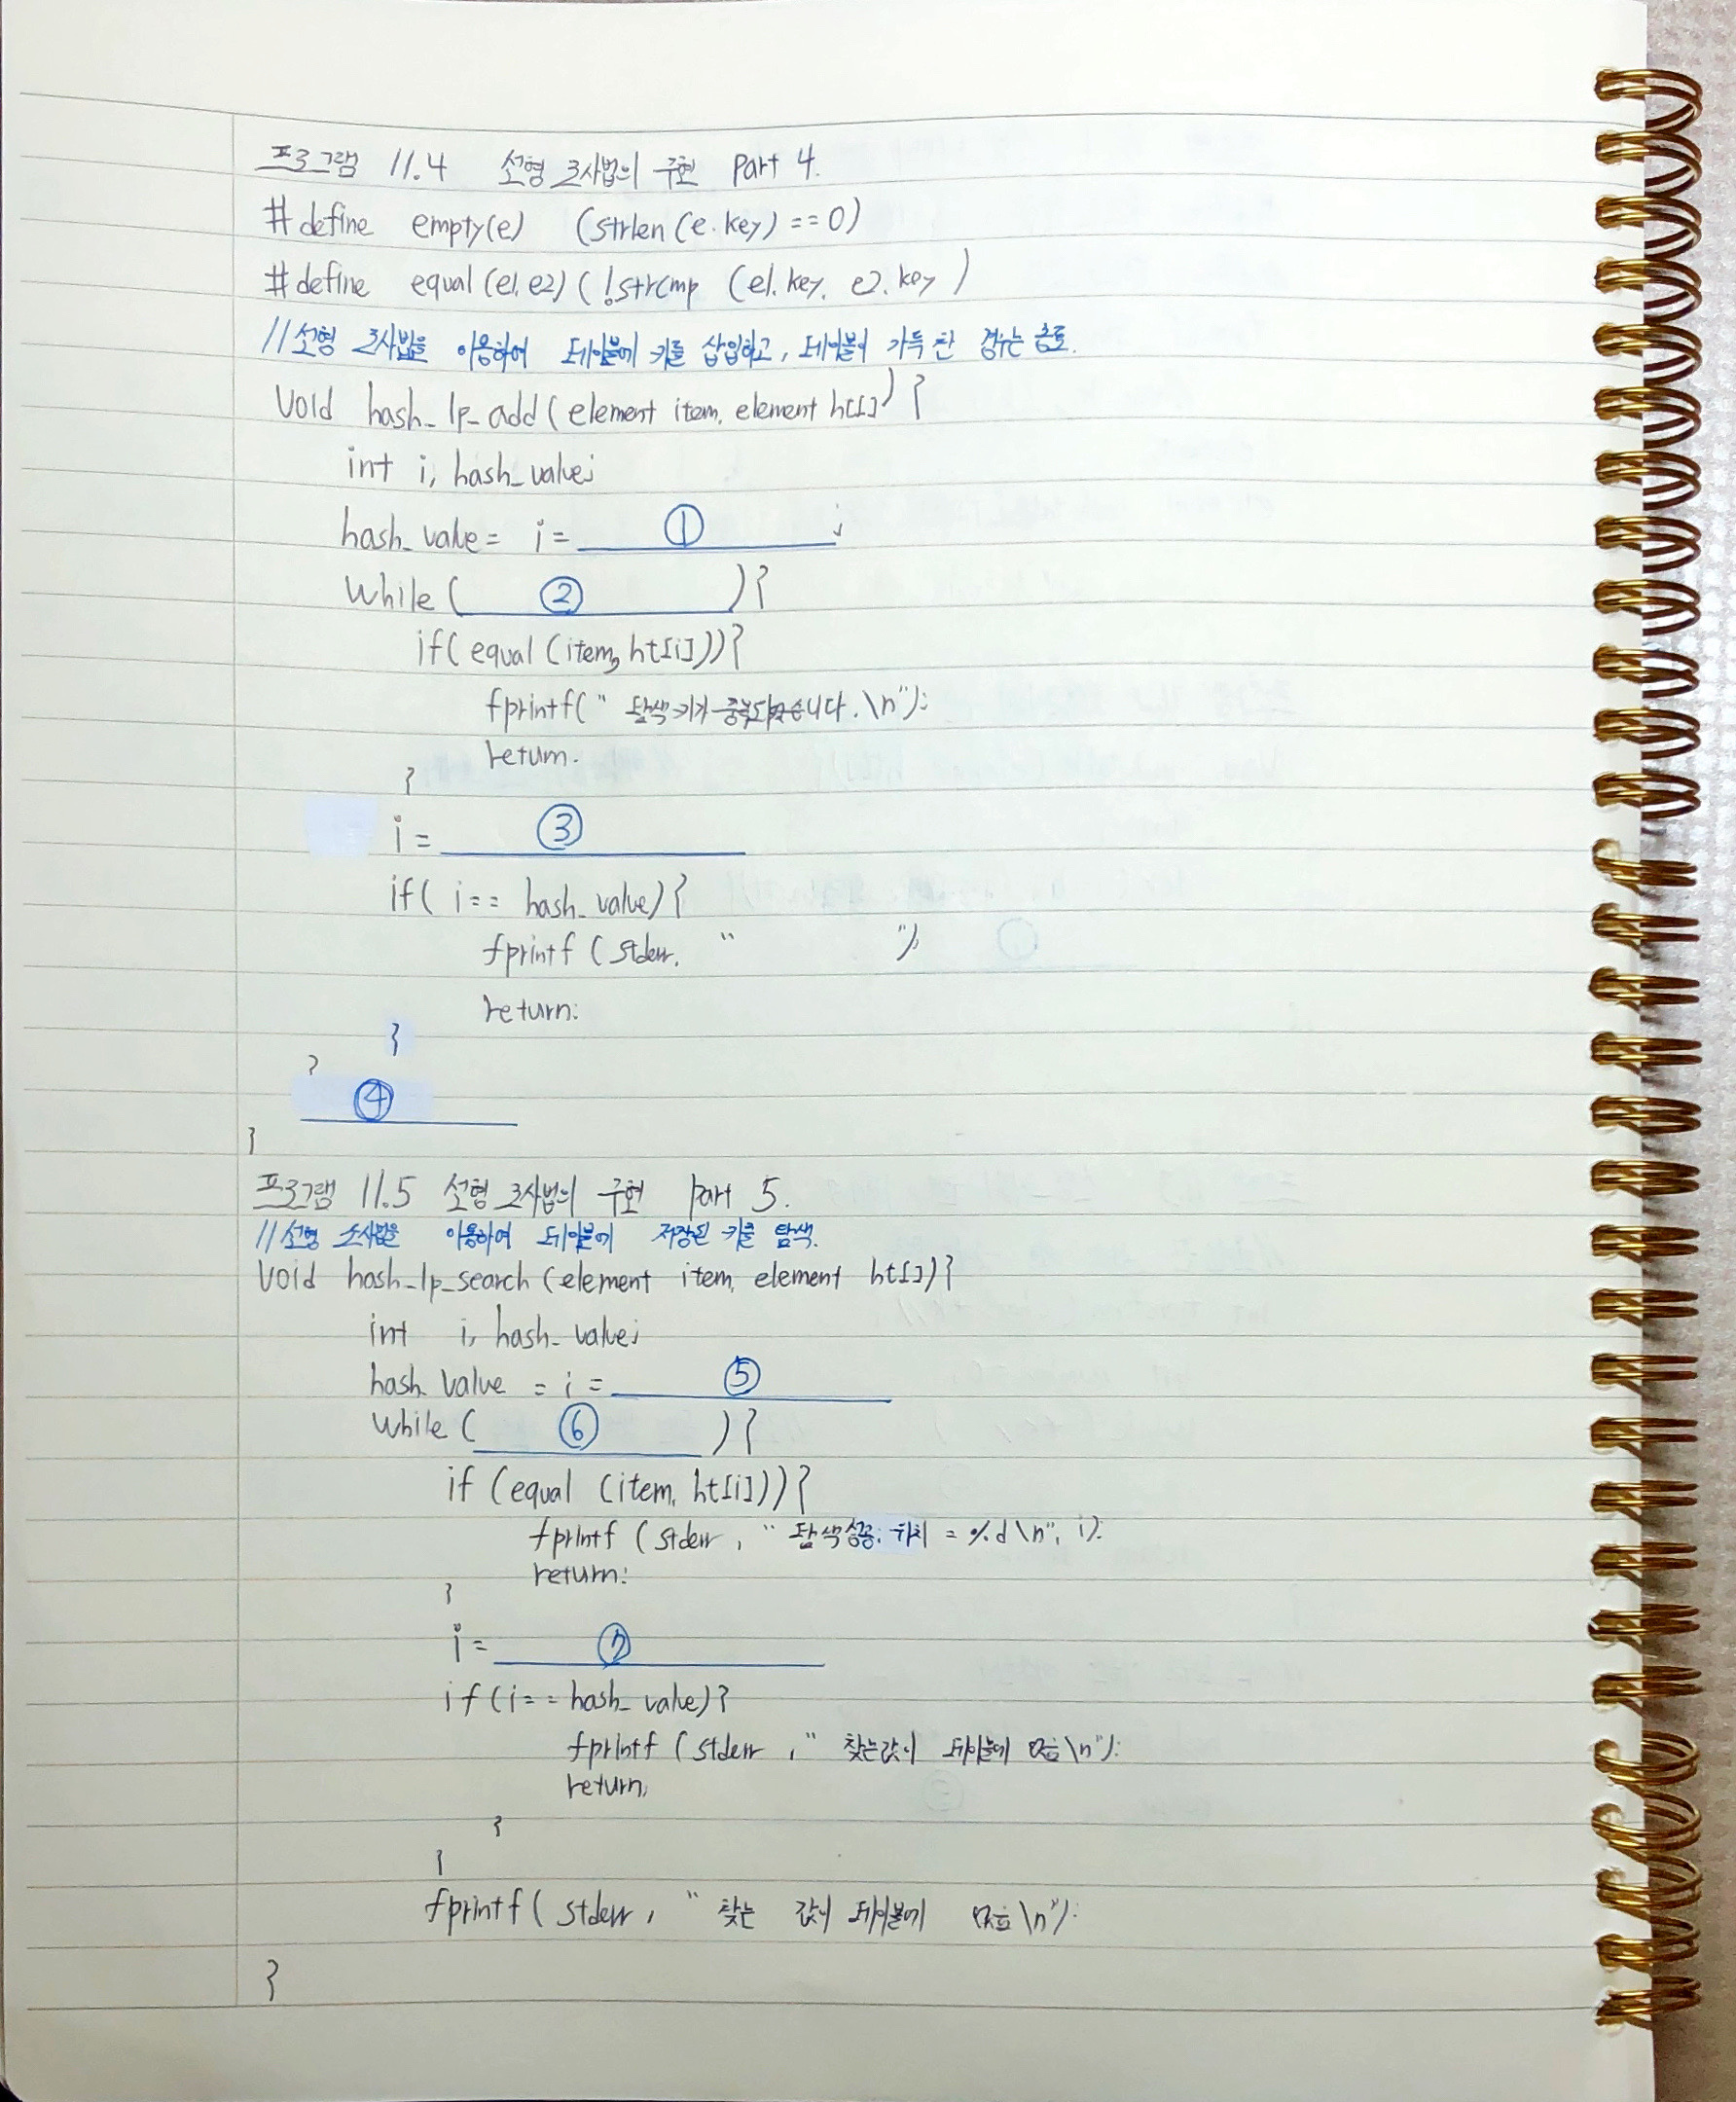 프로그램 11.4 선형 조사법의 구현 part 4.
#define empty(e) (strlen(e.key)==0)
#define equal(e1,e2)(!strcmp (e1.key, e2.key )
//선형 조사법을 이용하여 테이블에 키를 삽입하고, 테이블이 가득 찬 경우는 종료.
Void hash_lp_add(element item, element ht[]) {
int i, hash_value;
hash_value= i= ① ;
While( ② ){
if( equal (item, ht[i])){
fprintf(" 탐색키가 중복되었습니다.\n");
return.
}
i = ③
if( i== hash_value){
fprintf (stderr, " ");
return;
}
}
④
}
프로그램 11.5 선형 조사법의 구현 part 5.
//선형 조사법을 이용하여 테이블에 저장된 키를 탐색.
Void hash_lp_search(element item, element ht[]){
int i, hash_value;
hash_value = i = ⑤
While( ⑥ ){
if (equal (item, ht[i])){
fprintf (stderr, " 탐색성공: 위치 = %d\n", i);
return;
}
i= ⑦
if(i==hash_value){
fprintf (stderr ," 찾는값이 테이블에 없음\n");
return;
}
}
fprintf( stderr, " 찾는 값이 테이블에 없음\n");
}